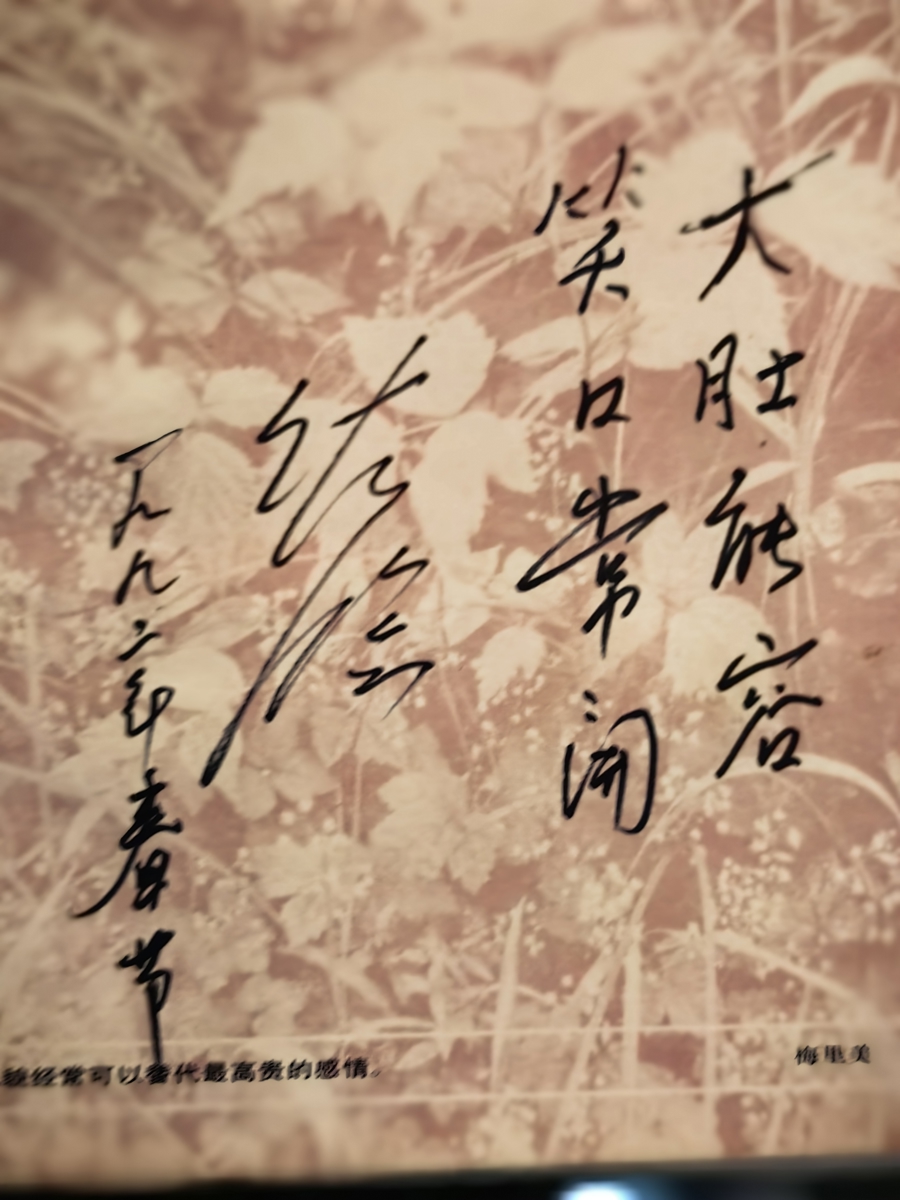 大肚能容
笑口常开
一九九二年春节
经常可以替代最高贵的感情。
梅里美